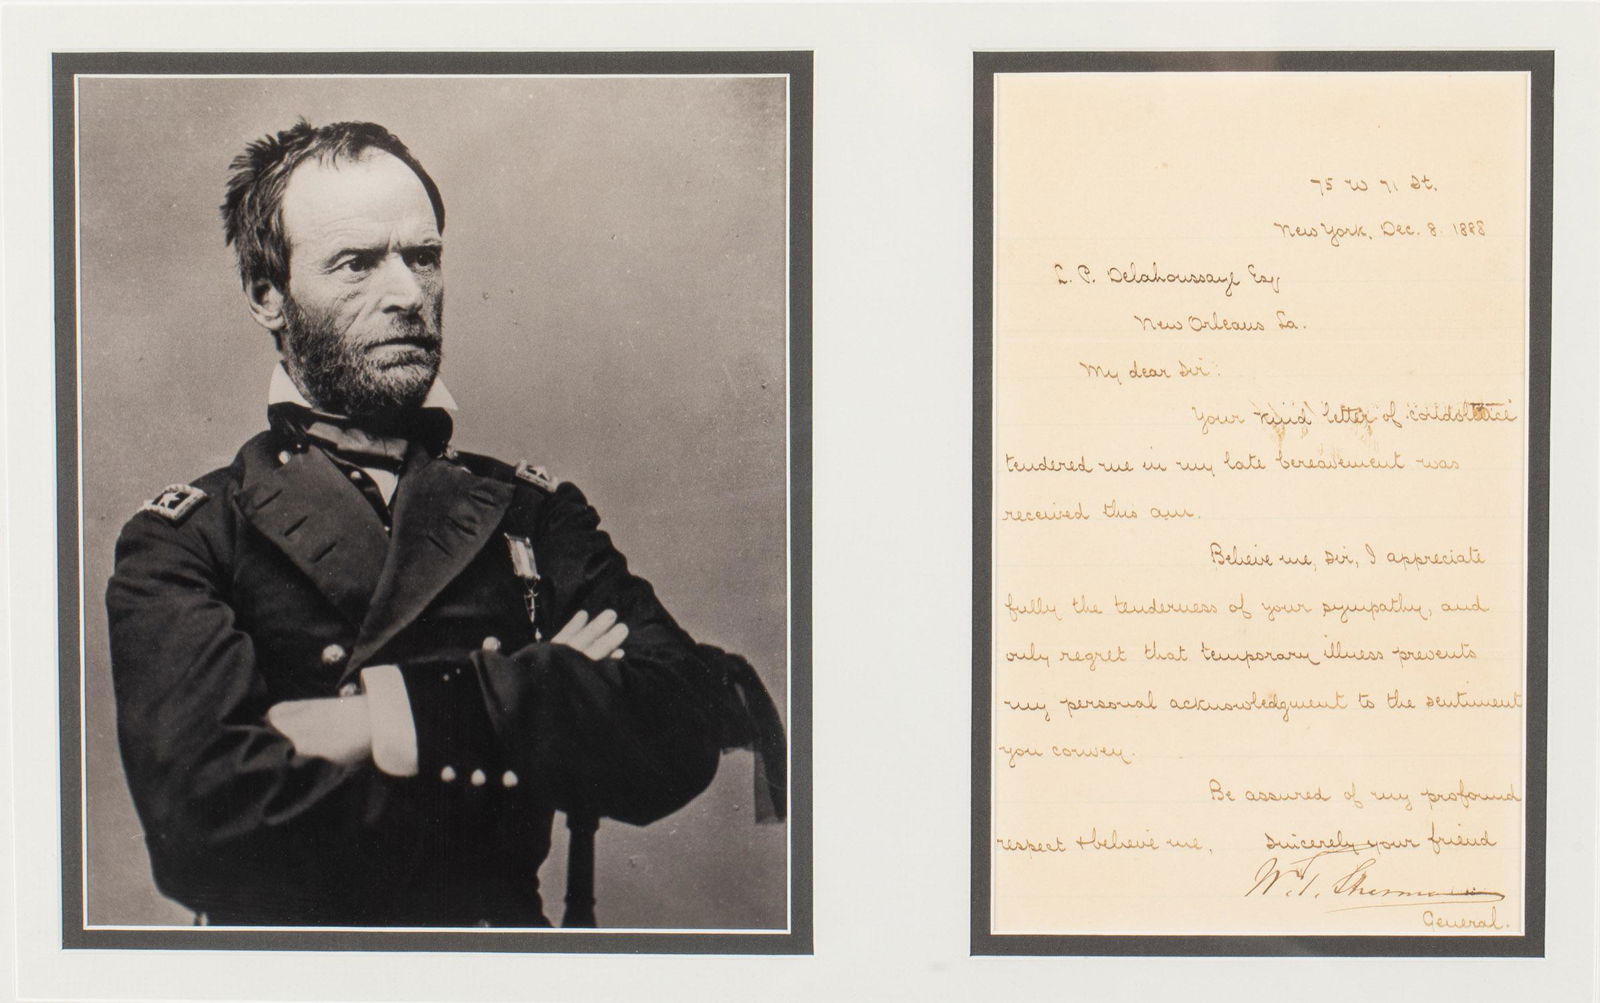 75 W 71 St.
New York, Dec. 8. 1888
L. P. Delahoussaye Esq
New Orleans La.
My dear Sir:
Your kind letter of condolence
tendered me in my late bereavement was
received this am.
Believe me, Sir, I appreciate
fully the tenderness of your sympathy, and
only regret that temporary illness prevents
my personal acknowledgment to the sentiment
you convey.
Be assured of my profound
respect + believe me, Sincerely your friend
W. T. Sherman
General.